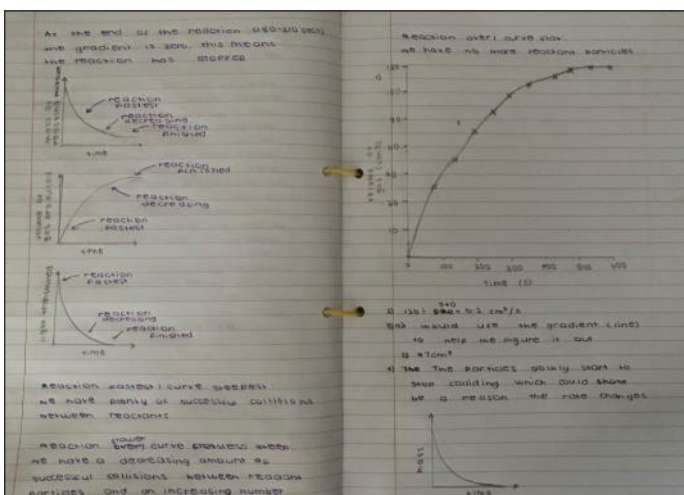 At the end of the reaction
the gradient is zero, this means
the reaction has stopped
reaction
fastest
reaction
decreasing
reaction
finished
time
reaction
finished
reaction
decreasing
reaction
fastest
time
reaction
fastest
reaction
decreasing
reaction
finished
time
Reaction fastest/curve steepest:
we have plenty of successful collisions
between reactants
Reaction slower curve less steep
we have a decreasing amount of
successful collisions between reactant
particles and an increasing number
Reaction over/curve flat
we have no more reactant particles
volume of
gas (cm³)
100 200 300 400 500 600
Time (s)
would use the gradient (line)
to help me figure it out
47cm³
The particles slowly start to
stop colliding which could
be a reason the rate changes
mass
time